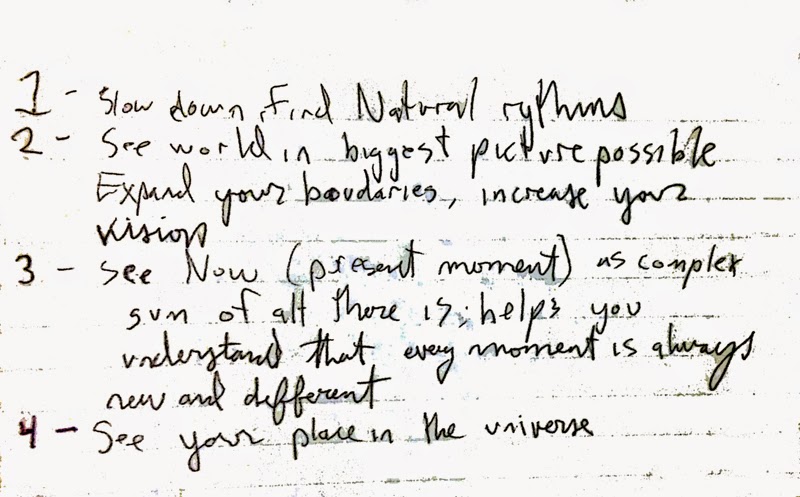 1 - Slow down, Find Natural rythms
2 - See world in biggest picture possible
Expand your boudaries, increase your
vision
3 - See Now (present moment) as complex
sum of all there is; helps you
understand that every moment is always
new and different
4 - See your place in the universe